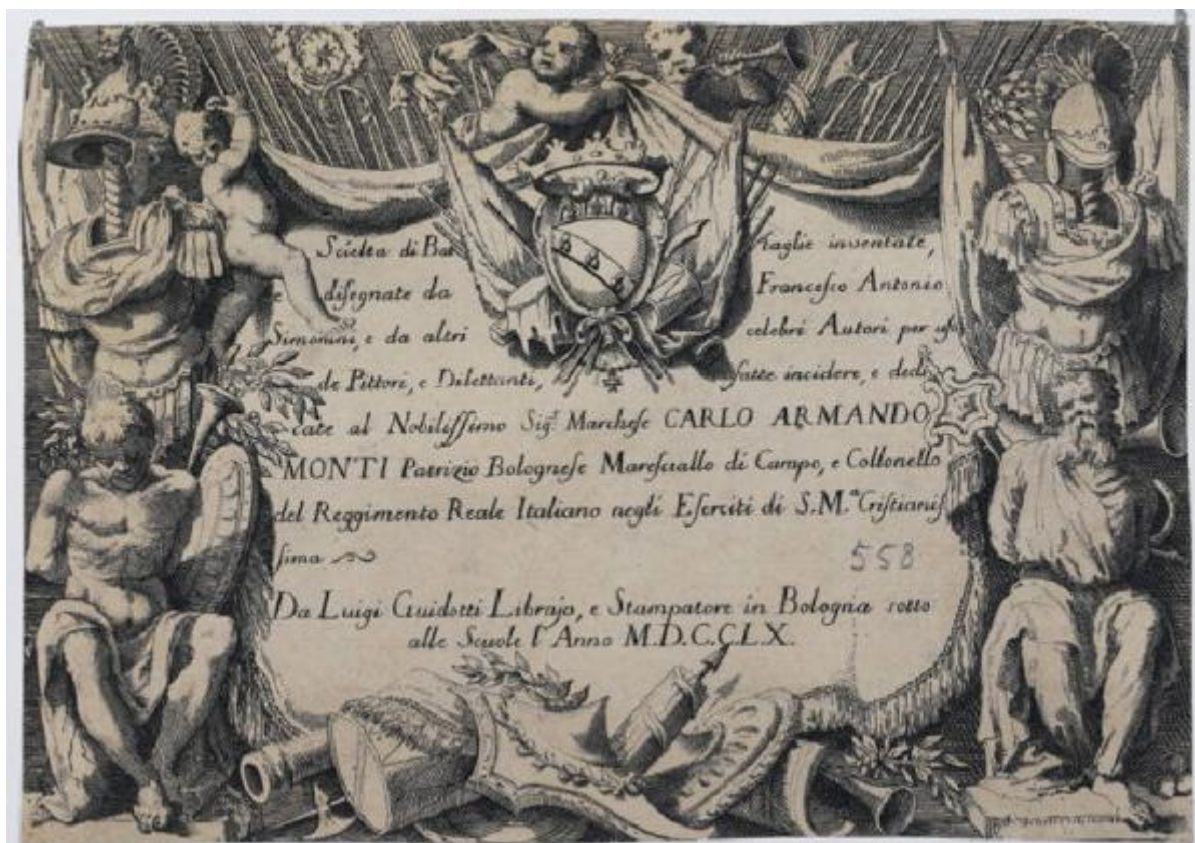 Scielta di Bat taglie inventate,
e disegnate da Francesco Antonio
Simonini, e da altri celebri Autori per uso
de Pittori, e Dilettanti, fatte incidere, e dedi
cate al Nobilissimo Sig.r Marchese CARLO ARMANDO
MONTI Patrizio Bolognese Maresciallo di Campo, e Collonello
del Reggimento Reale Italiano negli Eserciti di S.M.a Cristianis
sima
558
Da Luigi Guidotti Librajo, e Stampatore in Bologna sotto
alle Scuole l'Anno M.D.C.C.L.X.